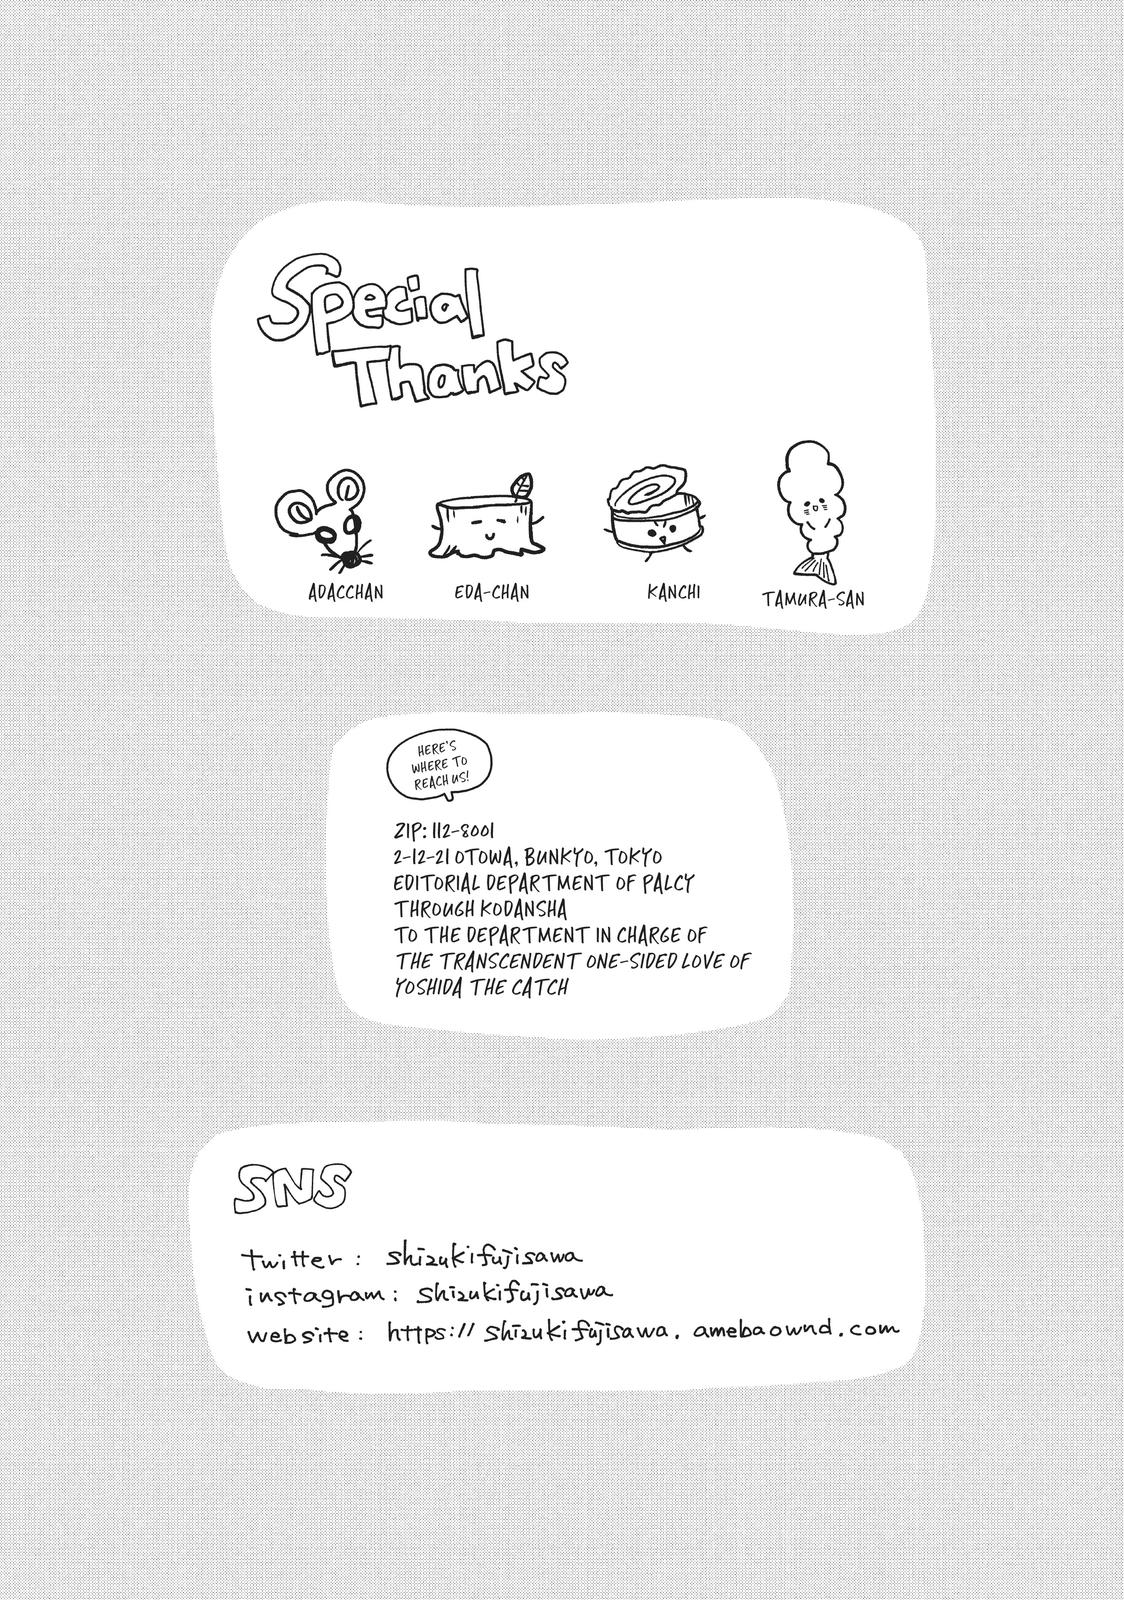 Special
Thanks
ADACCHAN
EDA-CHAN
KANCHI
TAMURA-SAN
HERE'S
WHERE TO
REACH US!
ZIP: 112-8001
2-12-21 OTOWA, BUNKYO, TOKYO
EDITORIAL DEPARTMENT OF PALCY
THROUGH KODANSHA
TO THE DEPARTMENT IN CHARGE OF
THE TRANSCENDENT ONE-SIDED LOVE OF
YOSHIDA THE CATCH
SNS
twitter : shizukifujisawa
instagram : shizukifujisawa
website : https://shizukifujisawa.amebaownd.com